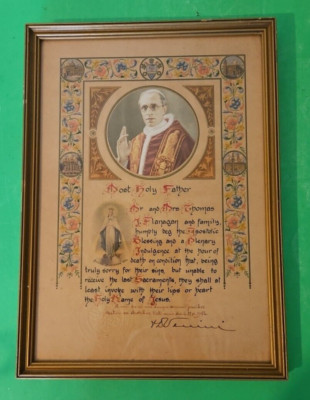 Most Holy Father
Mr and Mrs Thomas
J. Flanagan and family,
humbly beg the Apostolic
Blessing and a Plenary
Indulgence at the hour of
death on condition that, being
truly sorry for their sins, but unable to
receive the last Sacraments, they shall at
least invoke with their lips or heart
the Holy Name of Jesus.